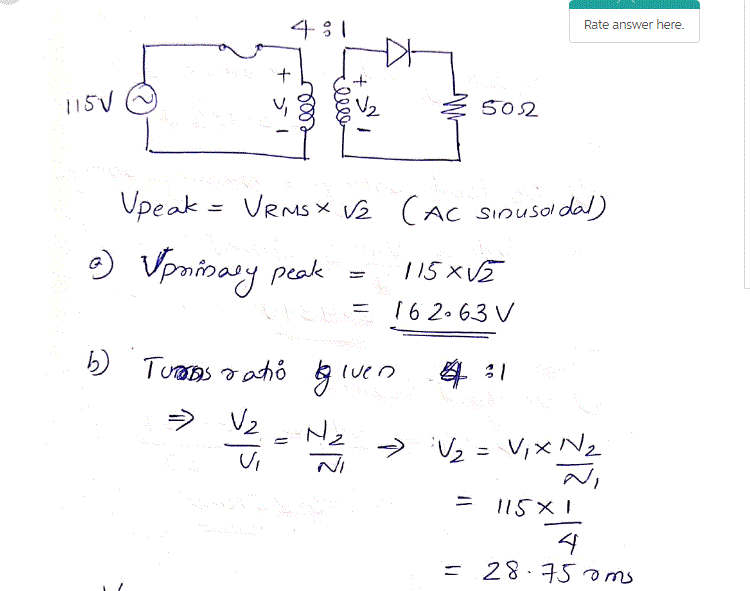 Rate answer here.
4:1
115V
+
V1
-
+
V2
-
50Ω
Vpeak = VRMS × √2 (AC sinusoidal)
a) Vprimary peak = 115 × √2
= 162.63 V
b) Turns ratio given 4:1
⇒ V2/V1 = N2/N1 → V2 = V1 × N2/N1
= 115 × 1/4
= 28.75 rms